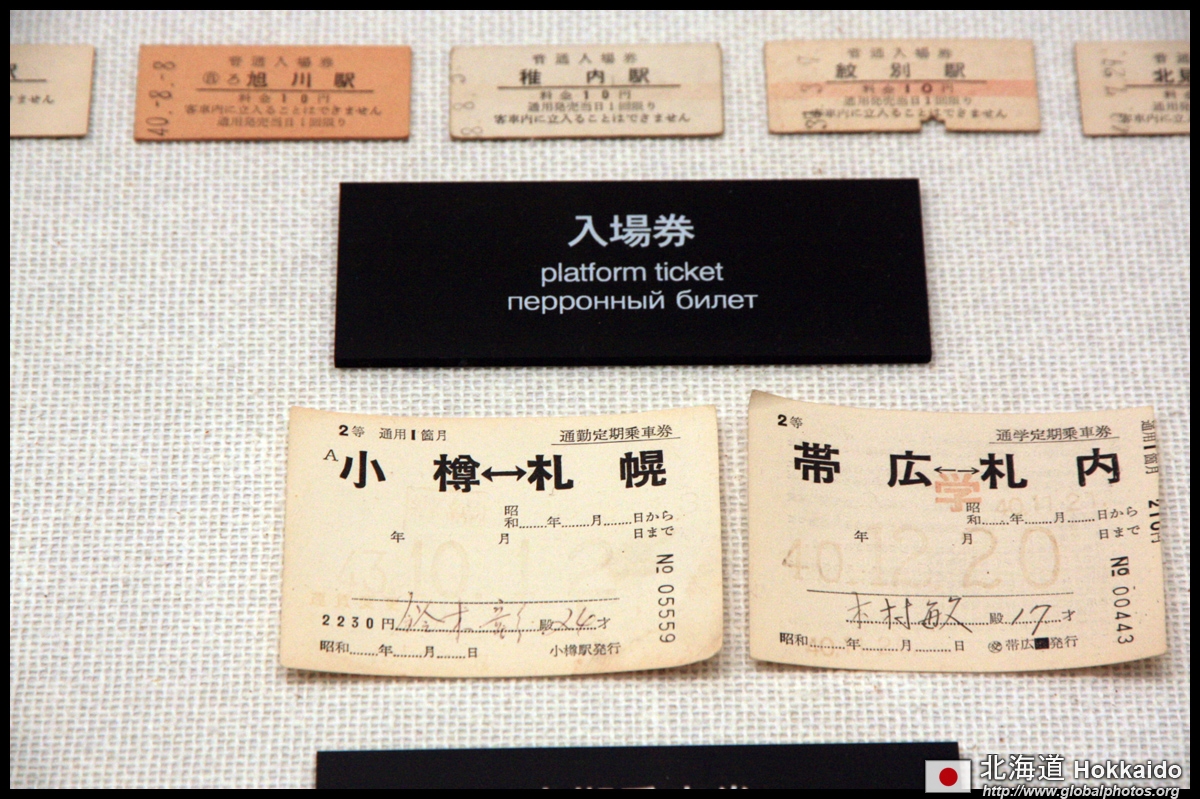 きません
普通入場券
旭川駅
料金10円
客車内に立入ることはできません
通用発売当日1回限り
40.-8.-8
普通入場券
稚内駅
料金10円
通用発売当日1回限り
客車内に立入ることはできません
普通入場券
紋別駅
料金10円
通用発売当日1回限り
客車内に立入ることはできません
北見
入場券
platform ticket
перронный билет
2等 通用1箇月 通勤定期乗車券
A小樽↔札幌
昭和......年......月......日から
年 月 日まで
No 05559
2230円 鈴木 殿 24才
昭和......年......月......日 小樽駅発行
2等 通学定期乗車券
通用1箇月 210円
帯広↔札内
学
昭和......年......月......日から
年 月 日まで
40.12.20
No 00443
木村敏 殿 17才
昭和......年......月......日 帯広 発行
北海道 Hokkaido
http://www.globalphotos.org